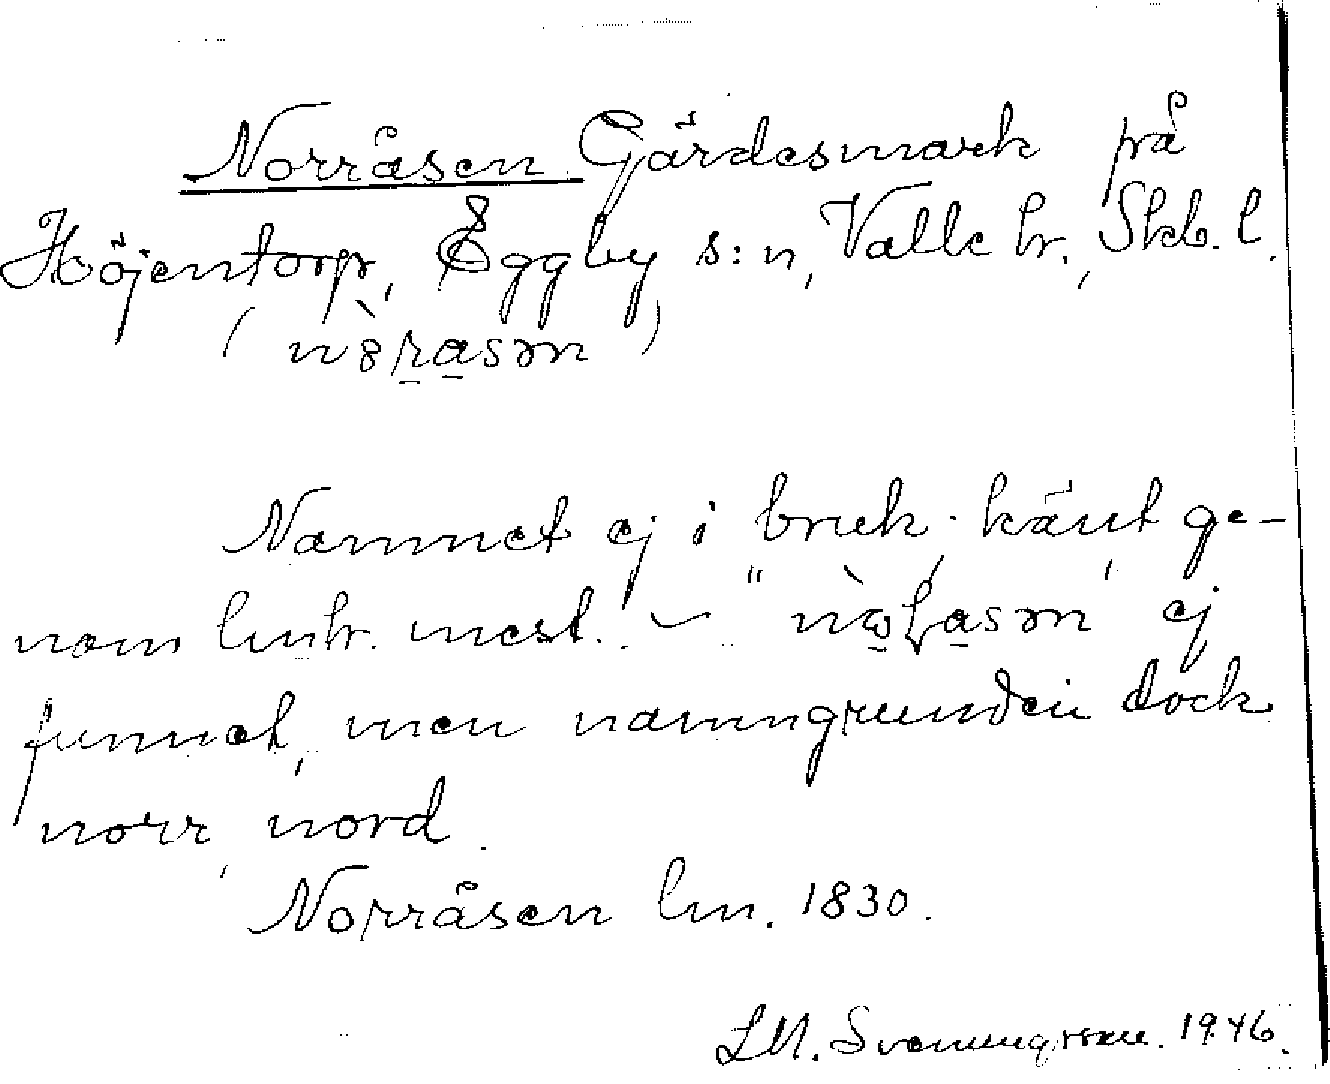 Norråsen Gärdesmark på
Höjentorp, Eggby s:n, Valle hr., Skb. l.
(n òrasən)
Namnet ej i bruk, känt ge-
nom lmtr. mest. – "nòɽasən" ej
funnet, men namngrunden dock
norr, nord.
Norråsen lm. 1830.
LM. Svenungsson. 1946.